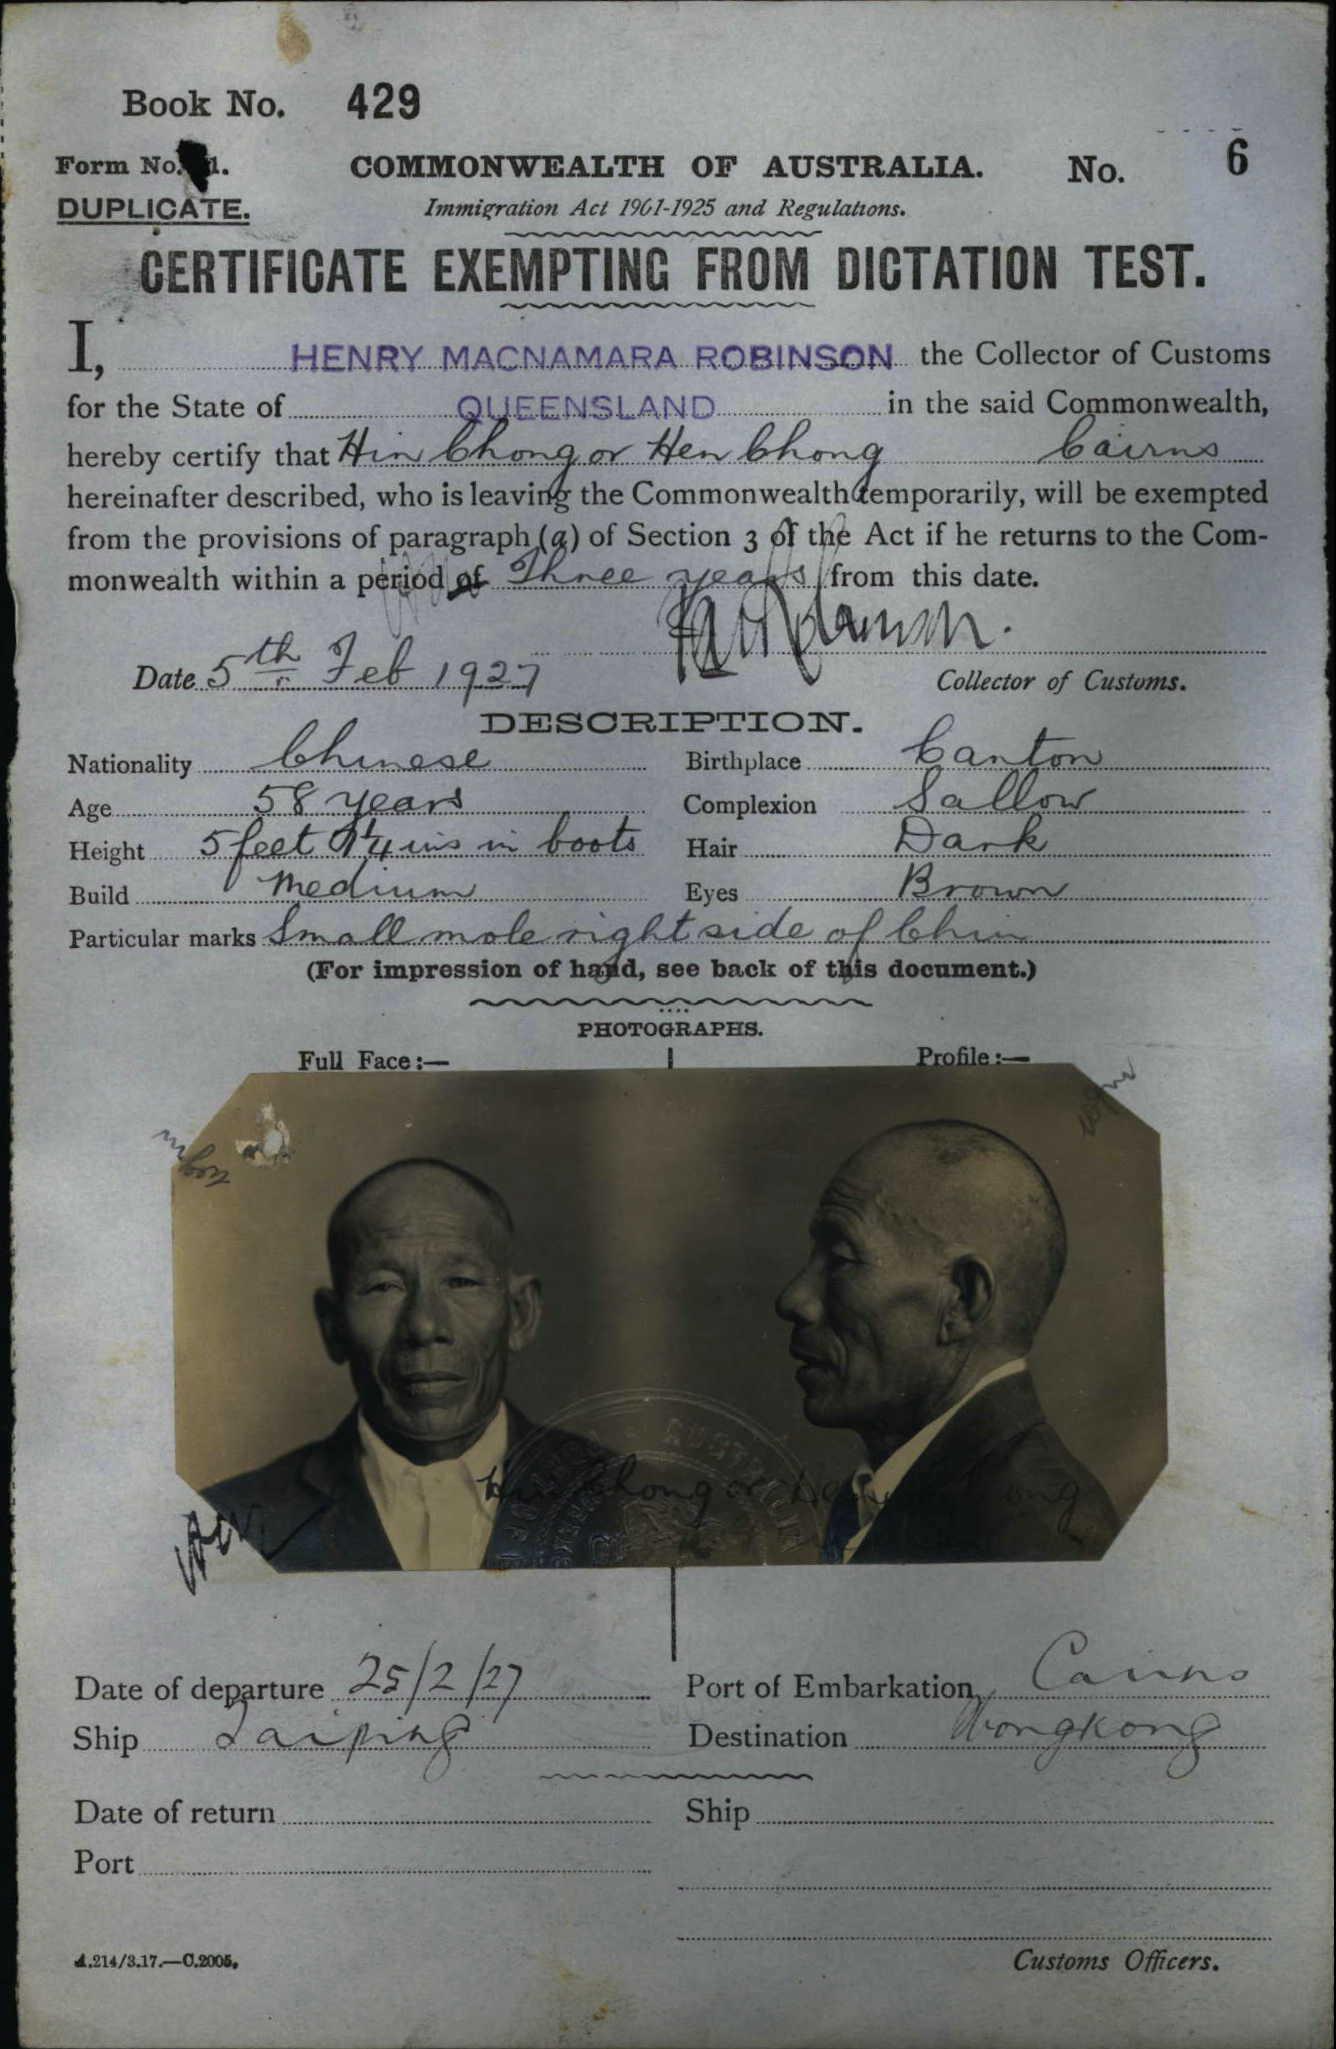 Book No. 429
Form No. 1.
COMMONWEALTH OF AUSTRALIA.
No. 6
DUPLICATE.
Immigration Act 1901-1925 and Regulations.
CERTIFICATE EXEMPTING FROM DICTATION TEST.
I, HENRY MACNAMARA ROBINSON the Collector of Customs
for the State of QUEENSLAND in the said Commonwealth,
hereby certify that Hin Chong or Hen Chong Cairns
hereinafter described, who is leaving the Commonwealth temporarily, will be exempted
from the provisions of paragraph (a) of Section 3 of the Act if he returns to the Com-
monwealth within a period of Three years from this date.
Date 5th Feb 1927
Collector of Customs.
DESCRIPTION.
Nationality Chinese Birthplace Canton
Age 58 years Complexion Sallow
Height 5 feet 1/4 ins in boots Hair Dark
Build Medium Eyes Brown
Particular marks Small mole right side of Chin
(For impression of hand, see back of this document.)
PHOTOGRAPHS.
Full Face:— Profile:—
Hin Chong or
Date of departure 25/2/27 Port of Embarkation Cairns
Ship Taiping Destination Hongkong
Date of return Ship
Port
A.214/3.17.—C.2005.
Customs Officers.